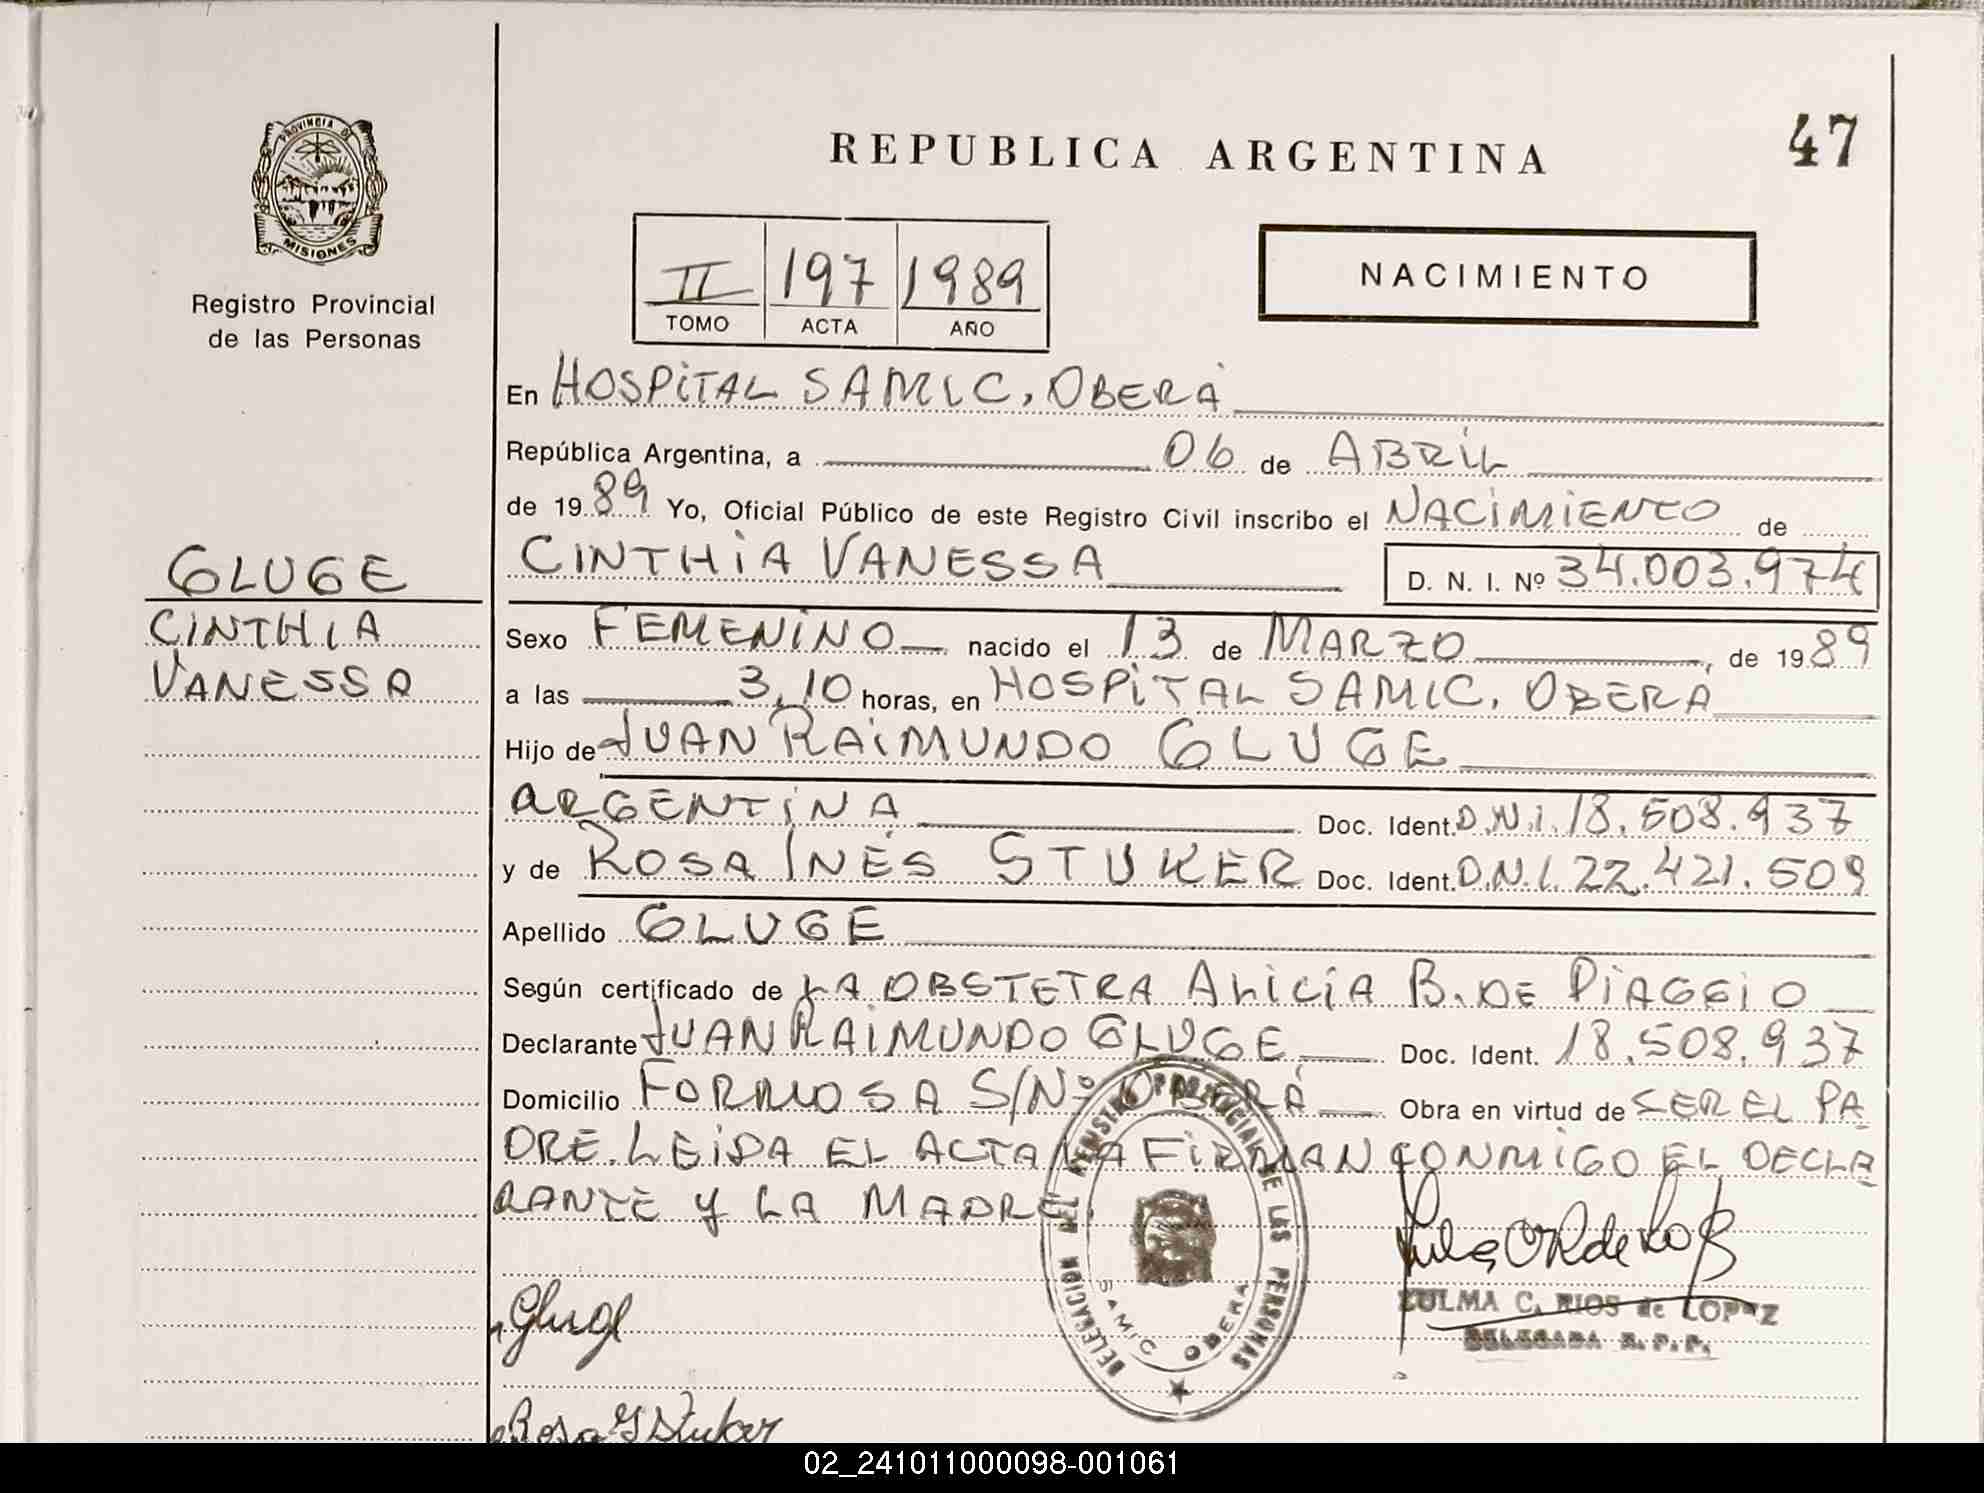 47
PROVINCIA DE
MISIONES
Registro Provincial
de las Personas
REPUBLICA ARGENTINA
II 197 1989
TOMO ACTA AÑO
NACIMIENTO
En HOSPITAL SAMIC, OBERÁ
República Argentina, a 06 de ABRIL
de 1989 Yo, Oficial Público de este Registro Civil inscribo el NACIMIENTO de
CINTHIA VANESSA D. N. I. Nº 34.003.974
GLUGE
CINTHIA
VANESSA
Sexo FEMENINO nacido el 13 de MARZO, de 1989
a las 3,10 horas, en HOSPITAL SAMIC, OBERÁ
Hijo de JUAN RAIMUNDO GLUGE
ARGENTINA Doc. Ident. D.N.I. 18.508.937
y de ROSA INÉS STUKER Doc. Ident. D.N.I. 22.421.509
Apellido GLUGE
Según certificado de LA OBSTETRA ALICIA B. DE PIAGGIO
Declarante JUAN RAIMUNDO GLUGE Doc. Ident. 18.508.937
Domicilio FORMOSA S/Nº OBERÁ Obra en virtud de SER EL PA
DRE. LEIDA EL ACTA LA FIRMAN CONMIGO EL DECLA
RANTE Y LA MADRE.
DELEGACION DEL REGISTRO PROVINCIAL DE LAS PERSONAS
SAMIC OBERA
Gluge
ZULMA C. RIOS de LOPEZ
DELEGADA R.P.P.
Rosa I Stuker
02_241011000098-001061